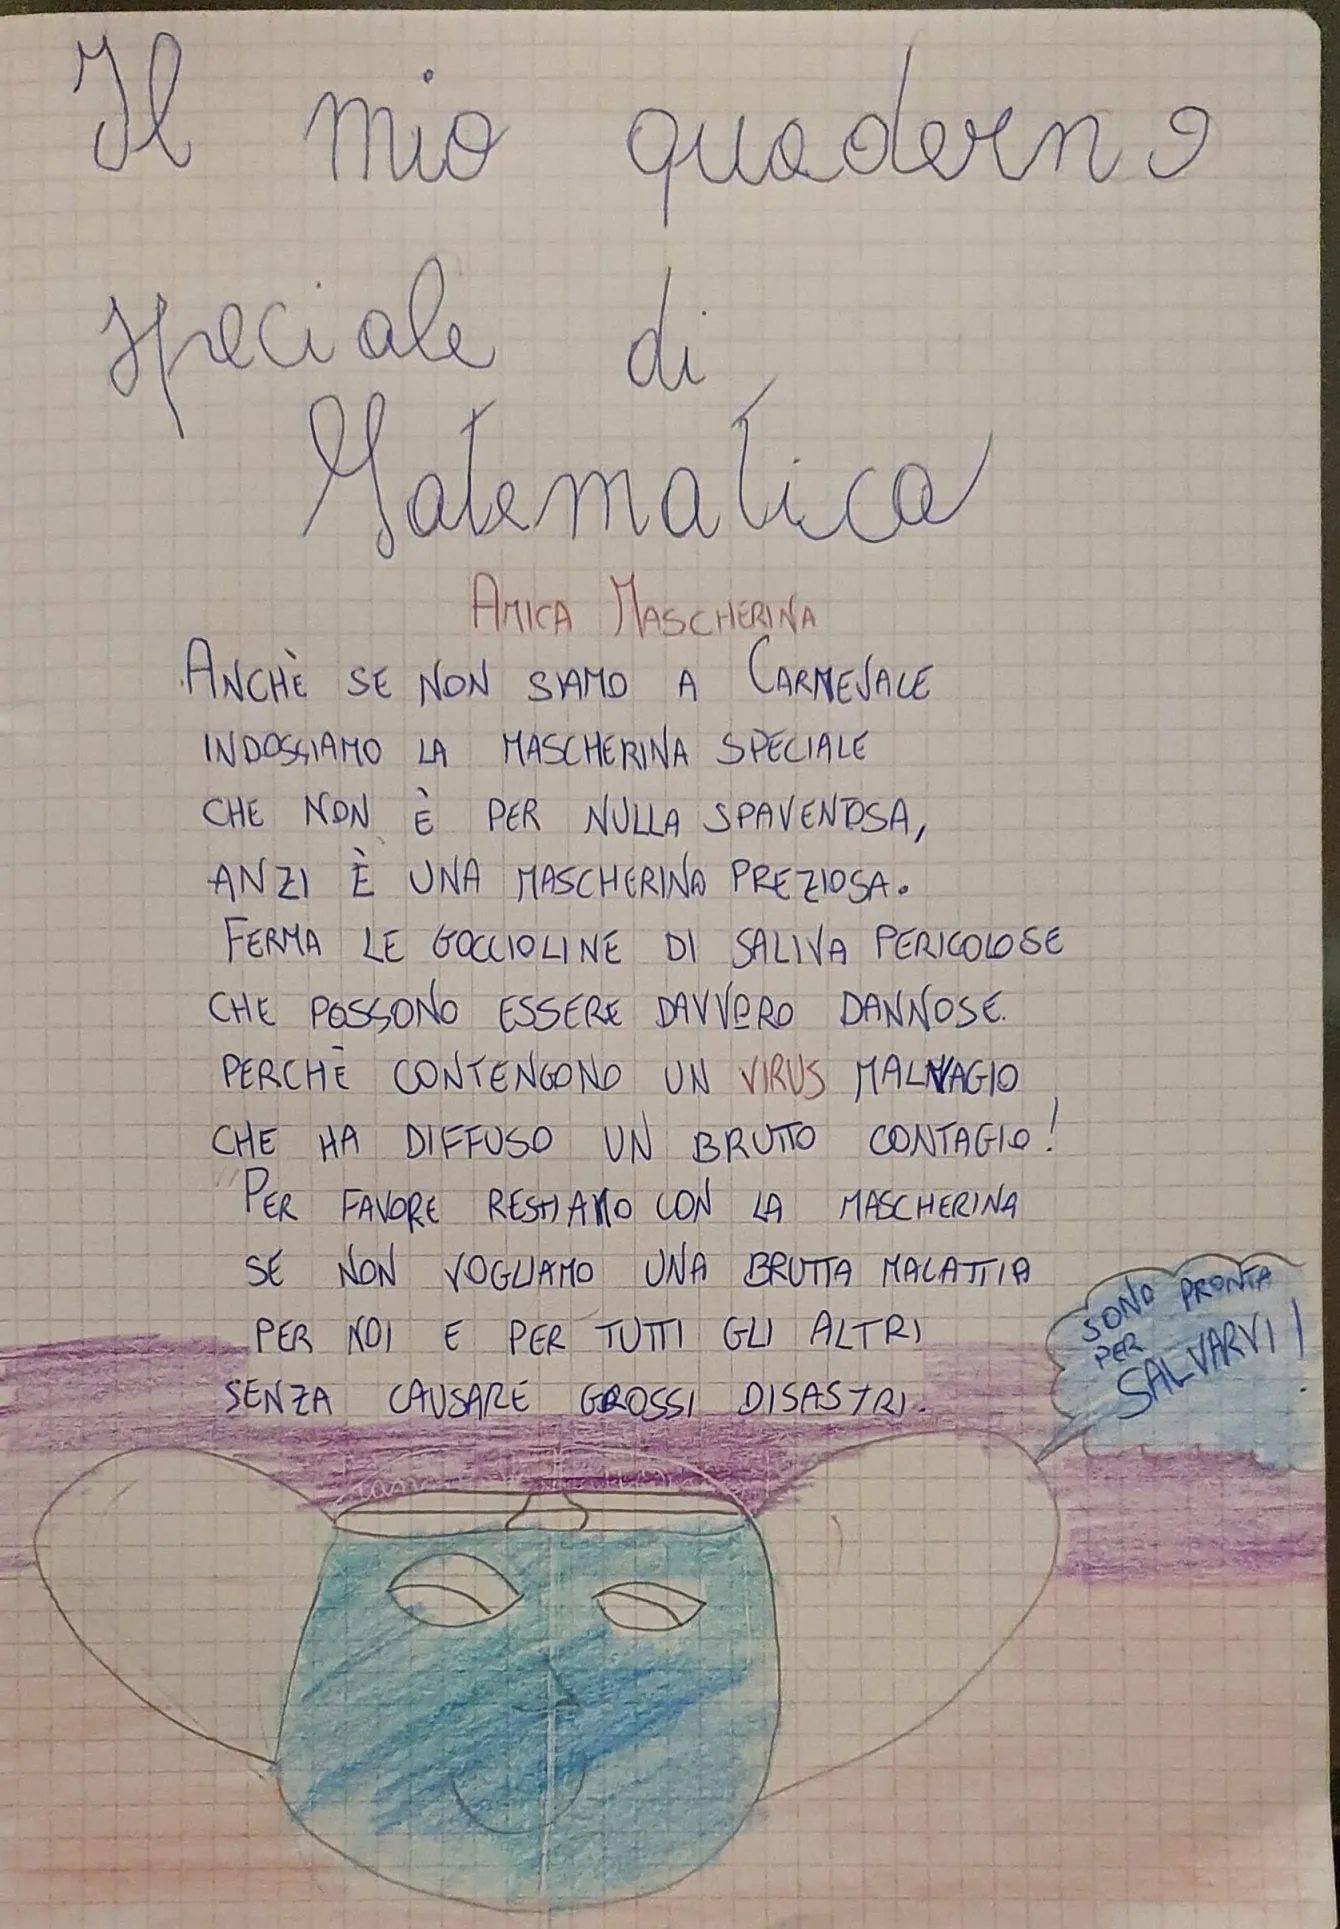 Il mio quaderno
speciale di
Matematica
AMICA MASCHERINA
ANCHÈ SE NON SIAMO A CARNEVALE
INDOSSIAMO LA MASCHERINA SPECIALE
CHE NON È PER NULLA SPAVENTOSA,
ANZI È UNA MASCHERINA PREZIOSA.
FERMA LE GOCCIOLINE DI SALIVA PERICOLOSE
CHE POSSONO ESSERE DAVVERO DANNOSE.
PERCHÈ CONTENGONO UN VIRUS MALVAGIO
CHE HA DIFFUSO UN BRUTTO CONTAGIO!
PER FAVORE RESTIAMO CON LA MASCHERINA
SE NON VOGLIAMO UNA BRUTTA MALATTIA
PER NOI E PER TUTTI GLI ALTRI
SENZA CAUSARE GROSSI DISASTRI.
SONO PRONTA
PER
SALVARVI!